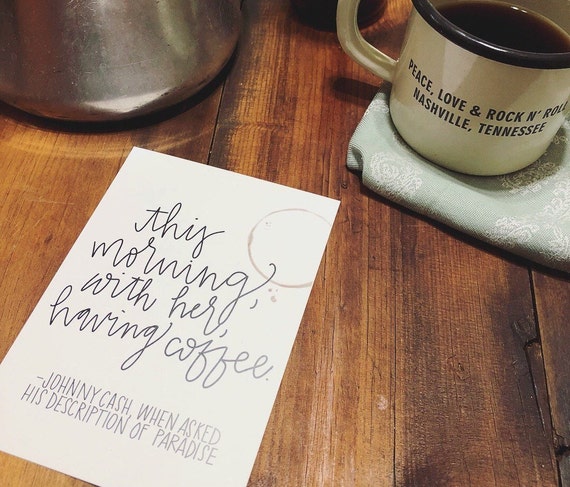 PEACE, LOVE & ROCK N' ROLL
NASHVILLE, TENNESSEE
this
morning,
with her,
having coffee.
-JOHNNY CASH, WHEN ASKED
HIS DESCRIPTION OF PARADISE